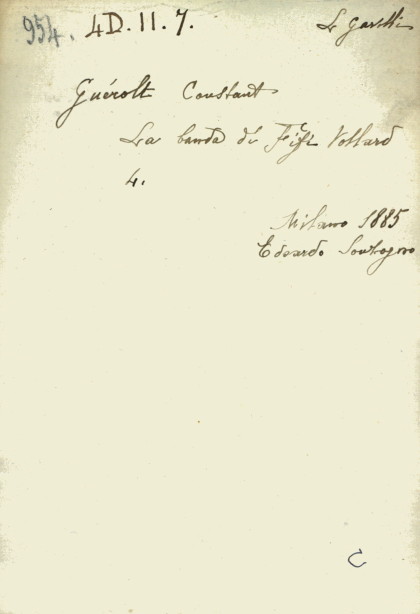 954. 4D. II. 7.
Guérolt Constant
La banda di Fifi Vollard
4.
Milano 1885
Edoardo Sonzogno
C